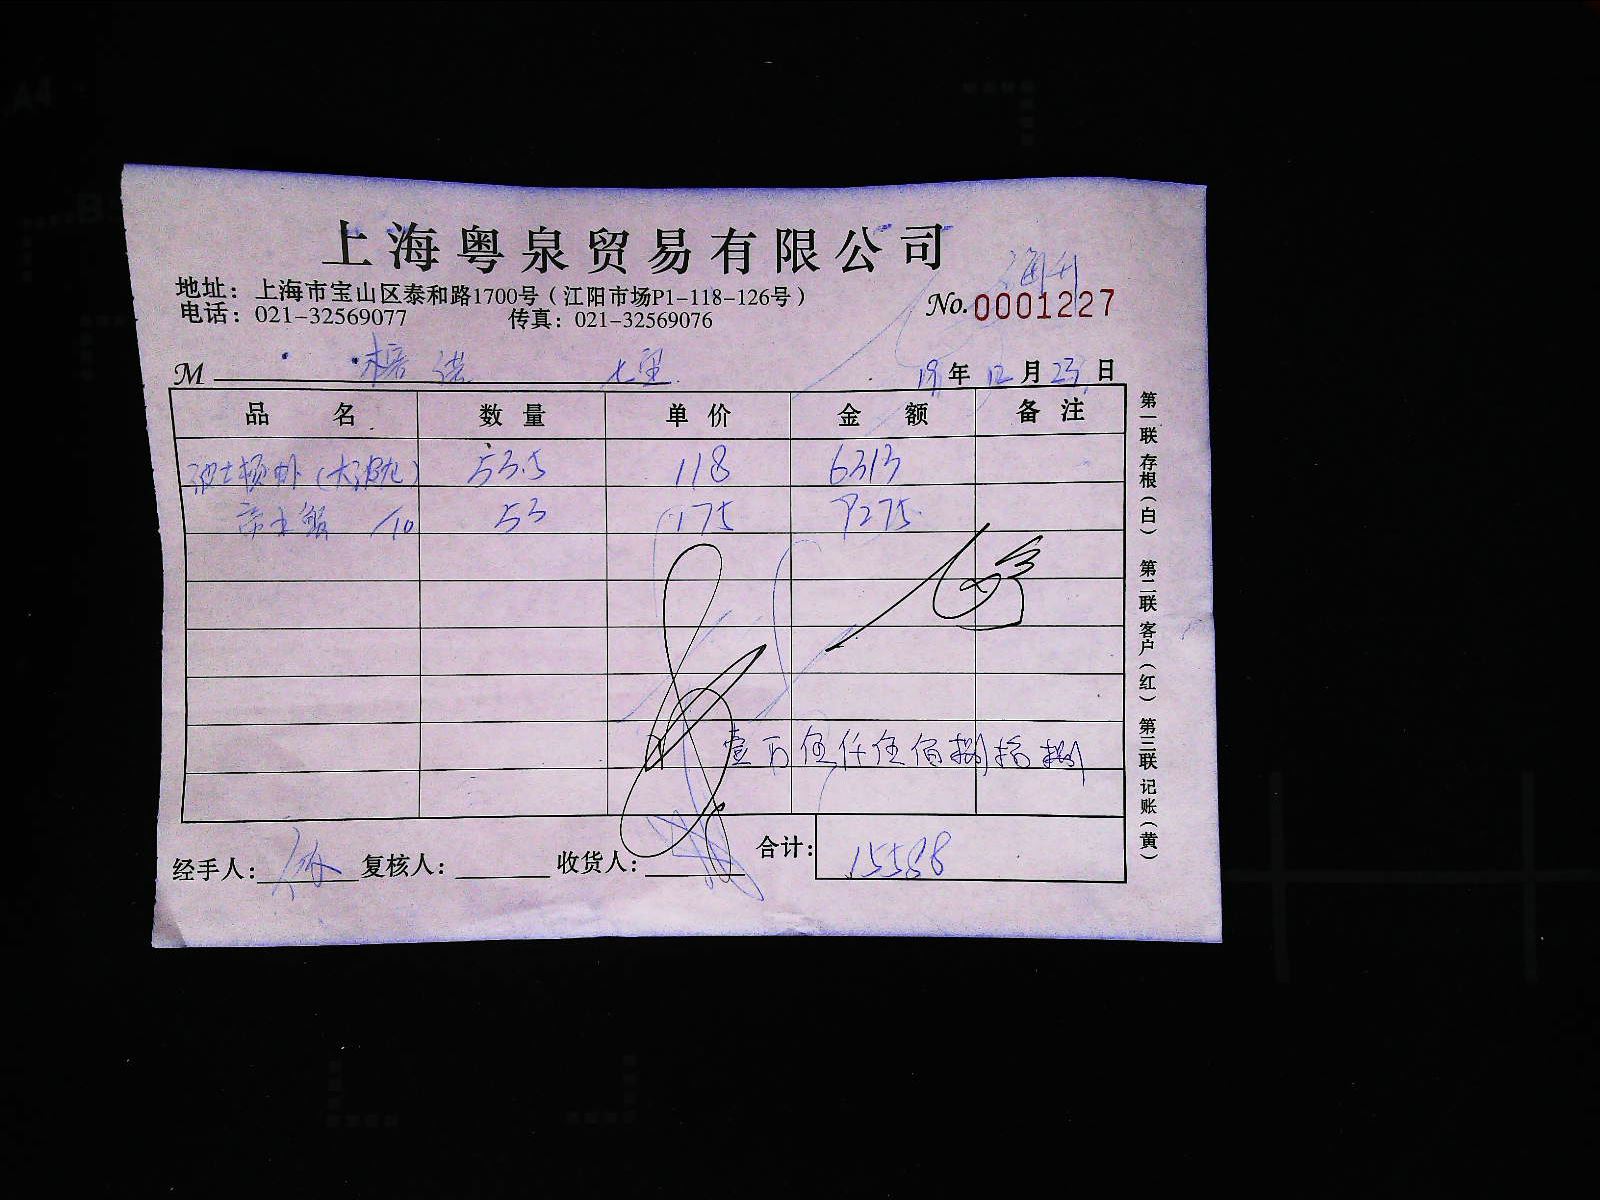 上海粤泉贸易有限公司
海升
地址：上海市宝山区泰和路1700号（江阳市场P1-118-126号）
No. 0001227
电话：021-32569077 传真：021-32569076
M 七宝 19年12月23日
品名 数量 单价 金额 备注
波士顿 (大波龙) 53.5 118 6313
帝王蟹 /10 53 175 9275
壹万伍仟伍佰捌拾捌
经手人： 复核人： 收货人： 合计：15588
第一联 存根（白） 第二联 客户（红） 第三联 记账（黄）